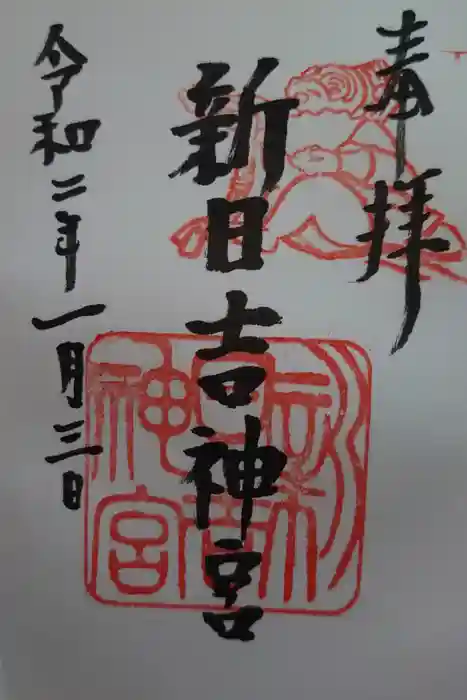 奉拝
新日吉神宮
令和二年一月三日
新日吉神宮